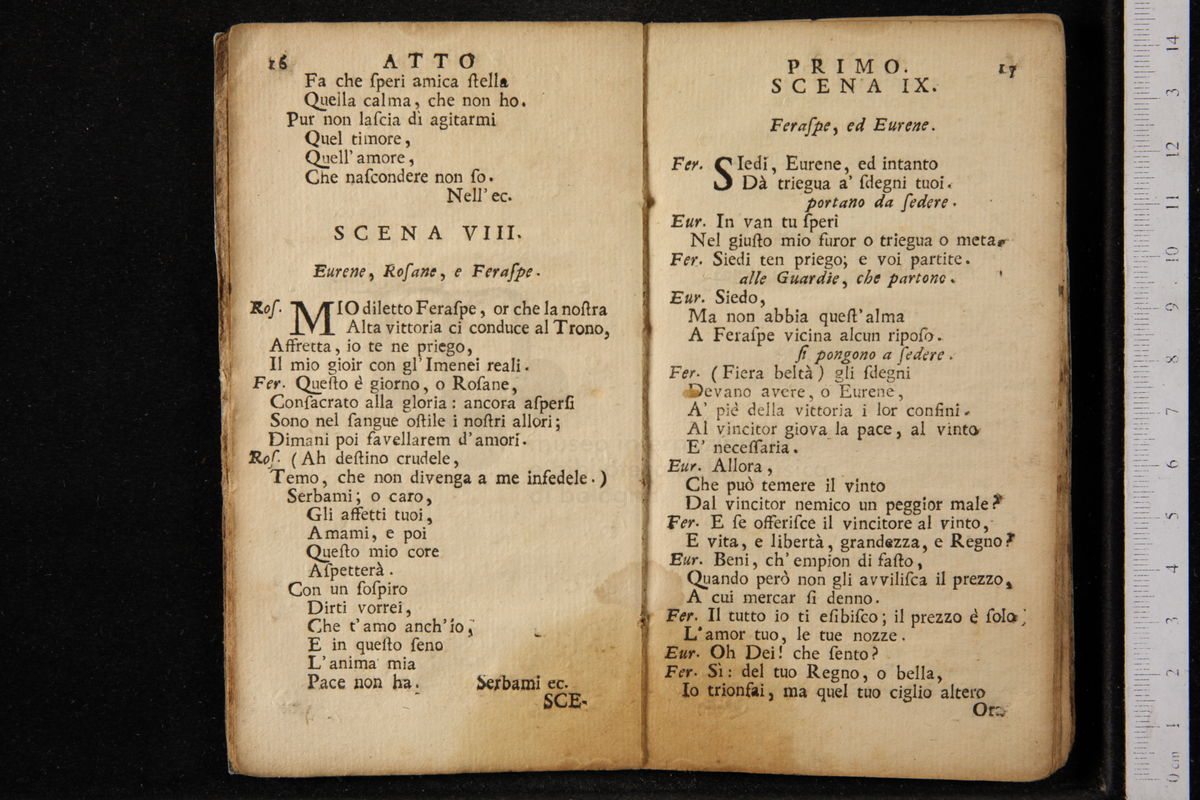 16 ATTO
Fa che ſperi amica ſtella
Quella calma, che non ho.
Pur non laſcia di agitarmi
Quel timore,
Quell' amore,
Che naſcondere non ſo.
Nell' ec.
SCENA VIII.
Eurene, Roſane, e Feraſpe.
Roſ. MIO diletto Feraſpe, or che la noſtra
Alta vittoria ci conduce al Trono,
Affretta, io te ne priego,
Il mio gioir con gl' Imenei reali.
Fer. Queſto è giorno, o Roſane,
Conſacrato alla gloria: ancora aſperſi
Sono nel ſangue oſtile i noſtri allori;
Dimani poi favellarem d'amori.
Roſ. (Ah deſtino crudele,
Temo, che non divenga a me infedele.)
Serbami; o caro,
Gli affetti tuoi,
Amami, e poi
Queſto mio core
Aſpetterà.
Con un ſoſpiro
Dirti vorrei,
Che t'amo anch'io,
E in queſto ſeno
L'anima mia
Pace non ha. Serbami ec.
SCE-
PRIMO. 17
SCENA IX.
Feraſpe, ed Eurene.
Fer. SIedi, Eurene, ed intanto
Dà triegua a' ſdegni tuoi.
portano da ſedere.
Eur. In van tu ſperi
Nel giuſto mio furor o triegua o meta.
Fer. Siedi ten priego; e voi partite.
alle Guardie, che partono.
Eur. Siedo,
Ma non abbia queſt'alma
A Feraſpe vicina alcun ripoſo.
ſi pongono a ſedere.
Fer. (Fiera beltà) gli ſdegni
Devano avere, o Eurene,
A' piè della vittoria i lor confini.
Al vincitor giova la pace, al vinto
E' neceſſaria.
Eur. Allora,
Che può temere il vinto
Dal vincitor nemico un peggior male?
Fer. E ſe offeriſce il vincitore al vinto,
E vita, e libertà, grandezza, e Regno?
Eur. Beni, ch' empion di faſto,
Quando però non gli avviliſca il prezzo,
A cui mercar ſi denno.
Fer. Il tutto io ti eſibiſco; il prezzo è ſolo
L'amor tuo, le tue nozze.
Eur. Oh Dei! che ſento?
Fer. Sì: del tuo Regno, o bella,
Io trionfai, ma quel tuo ciglio altero
Ora